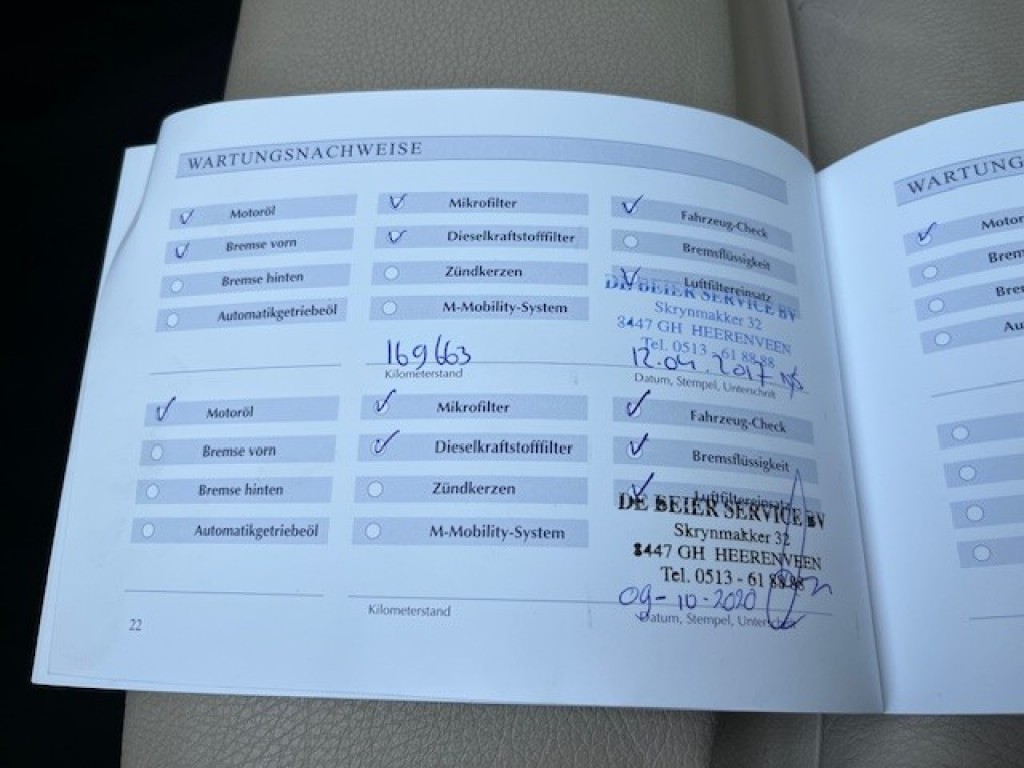 WARTUNGSNACHWEISE
Motoröl
Mikrofilter
Fahrzeug-Check
Bremse vorn
Dieselkraftstofffilter
Bremsflüssigkeit
Bremse hinten
Zündkerzen
Luftfiltereinsatz
Automatikgetriebeöl
M-Mobility-System
DE BEIER SERVICE BV
Skrynmakker 32
8447 GH HEERENVEEN
Tel. 0513 - 61 88 88
169663
12.04.2017
Kilometerstand
Datum, Stempel, Unterschrift
Motoröl
Mikrofilter
Fahrzeug-Check
Bremse vorn
Dieselkraftstofffilter
Bremsflüssigkeit
Bremse hinten
Zündkerzen
Luftfiltereinsatz
Automatikgetriebeöl
M-Mobility-System
DE BEIER SERVICE BV
Skrynmakker 32
8447 GH HEERENVEEN
Tel. 0513 - 61 88 88
09-10-2020
Kilometerstand
Datum, Stempel, Unterschrift
22
WARTUNG
Motor
Brem
Bre
Au